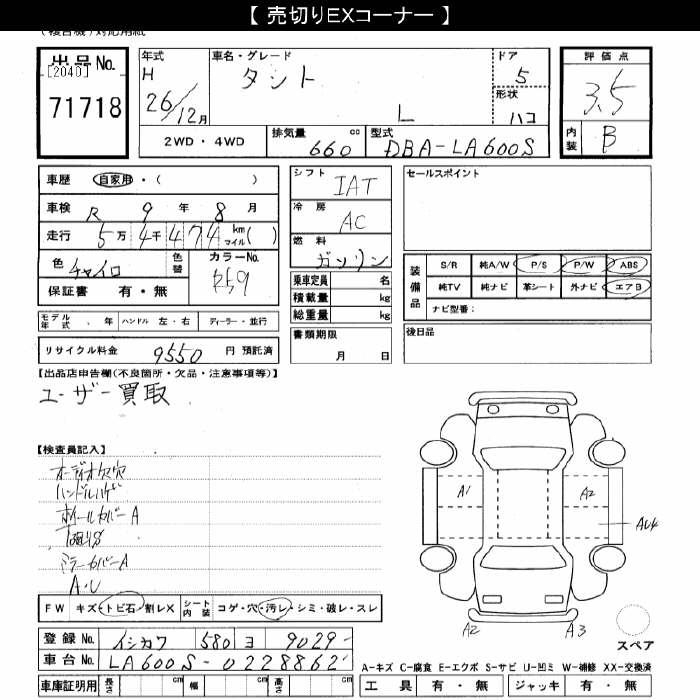 【 売切りEXコーナー 】
(複合機)対応用紙
出品No.
[2040]
71718
年式
H
26/12月
車名・グレード
タント
L
ドア
5
形状
ハコ
評価点
3.5
内装
B
2WD・4WD
排気量
660 cc
型式
DBA-LA600S
車歴 自家用・( )
車検 R 9 年 8 月
走行 5万 4千 474 km マイル ( )
色 チャイロ
色替
カラーNo.
R59
保証書 有・無
モデル年式 . 年 ハンドル 左・右 ディーラー・並行
リサイクル料金 9550 円 預託済
シフト
IAT
冷房
AC
燃料
ガソリン
乗車定員 名
積載量 kg
総重量 kg
書類期限
月 日
セールスポイント
装備品
S/R 純A/W P/S P/W ABS
純TV 純ナビ 革シート 外ナビ エアB
ナビ型番:
後日品
【出品店申告欄(不良箇所・欠品・注意事項等)】
ユーザー買取
【検査員記入】
オーディオ欠穴
ハンドルハゲ
ホイールカバーA
ミラーカバーA
A・U
A1
A2
AU4
A2
A3
スペア
FW キズ・トビ石・割レX
シート内装 コゲ・穴・汚レ・シミ・破レ・スレ
登録No. イシカワ 580 ヨ 9029
車台No. LA600S-0228862
車庫証明用 長さ cm 幅 cm 高さ cm
A-キズ C-腐食 E-エクボ S-サビ U-凹ミ W-補修 XX-交換済
工具 有・無 ジャッキ 有・無